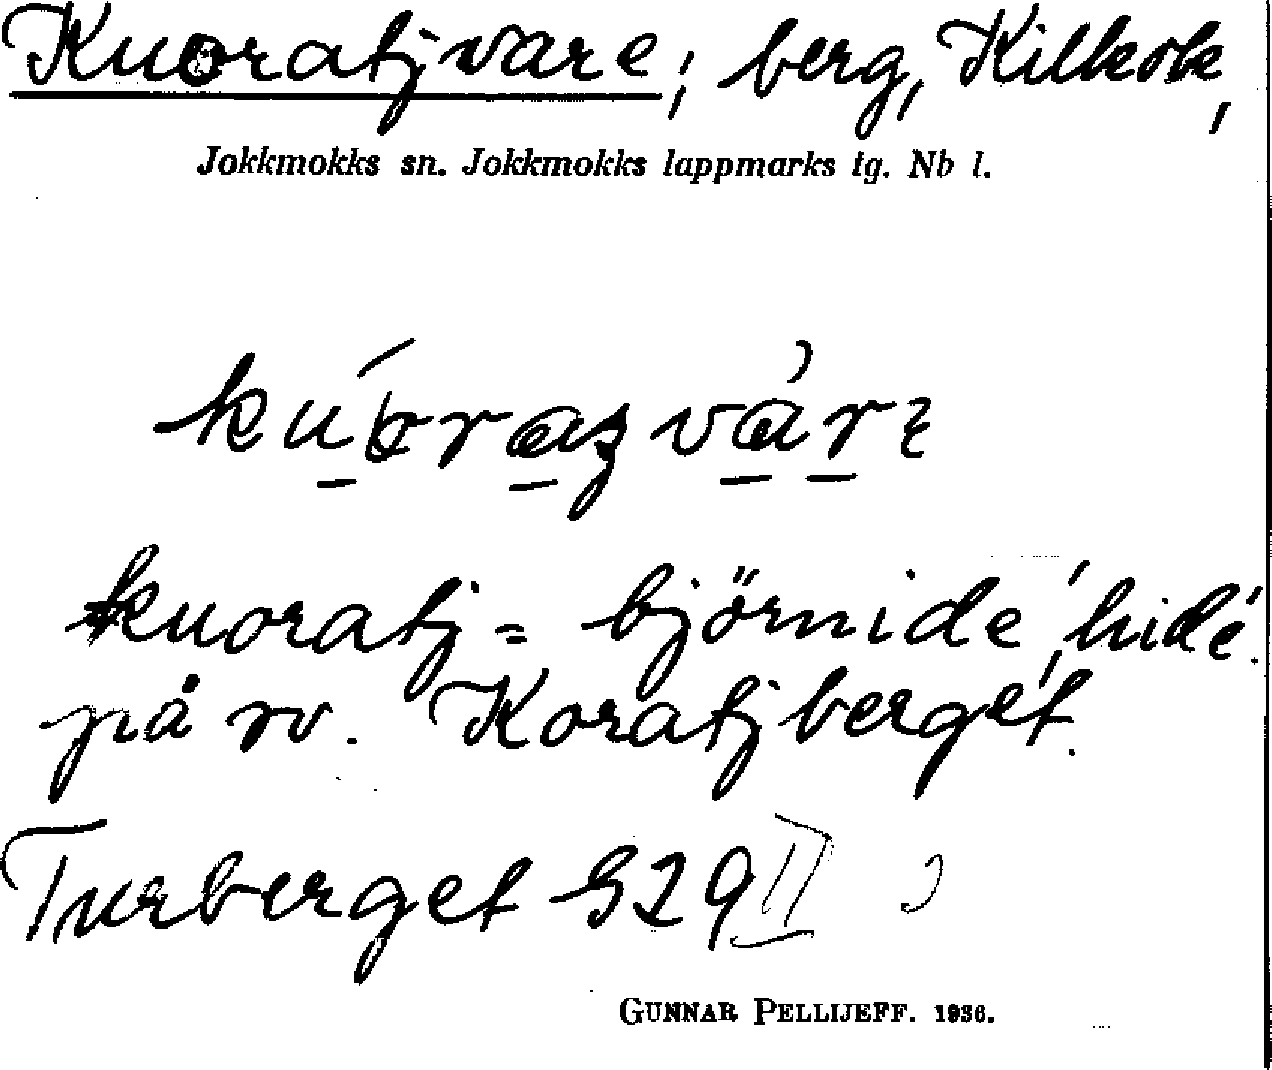 Kuoratjvare, berg, Kilkok,
Jokkmokks sn. Jokkmokks lappmarks tg. Nb l.
kuoratj = björnide, hidé.
på rv. Koratjberget.
Turberget S29 II
GUNNAR PELLIJEFF. 1936.